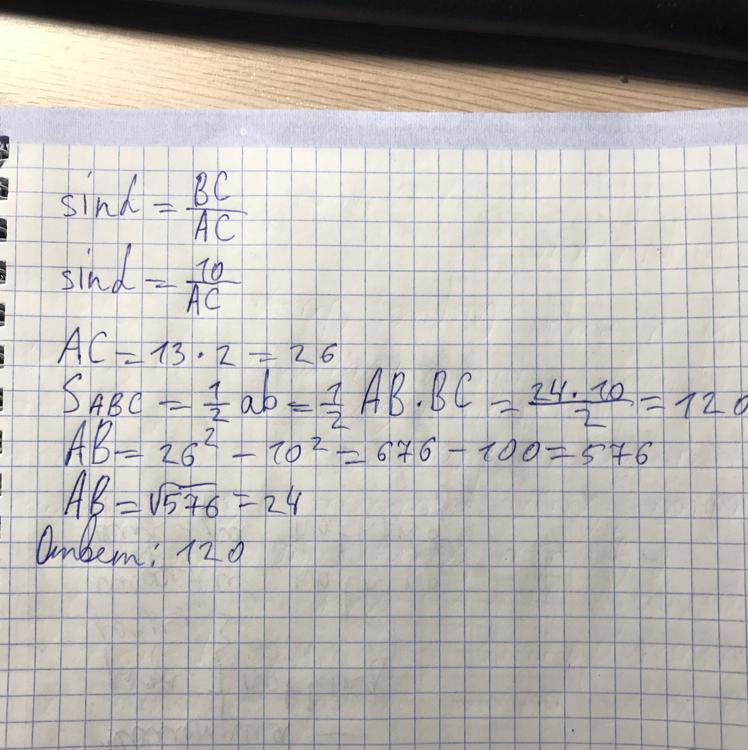 sinα = BC/AC
sinα = 10/AC
AC = 13 · 2 = 26
S ABC = 1/2 ab = 1/2 AB · BC = 24 · 10/2 = 120
AB = 26² - 10² = 676 - 100 = 576
AB = √576 = 24
Ответ: 120